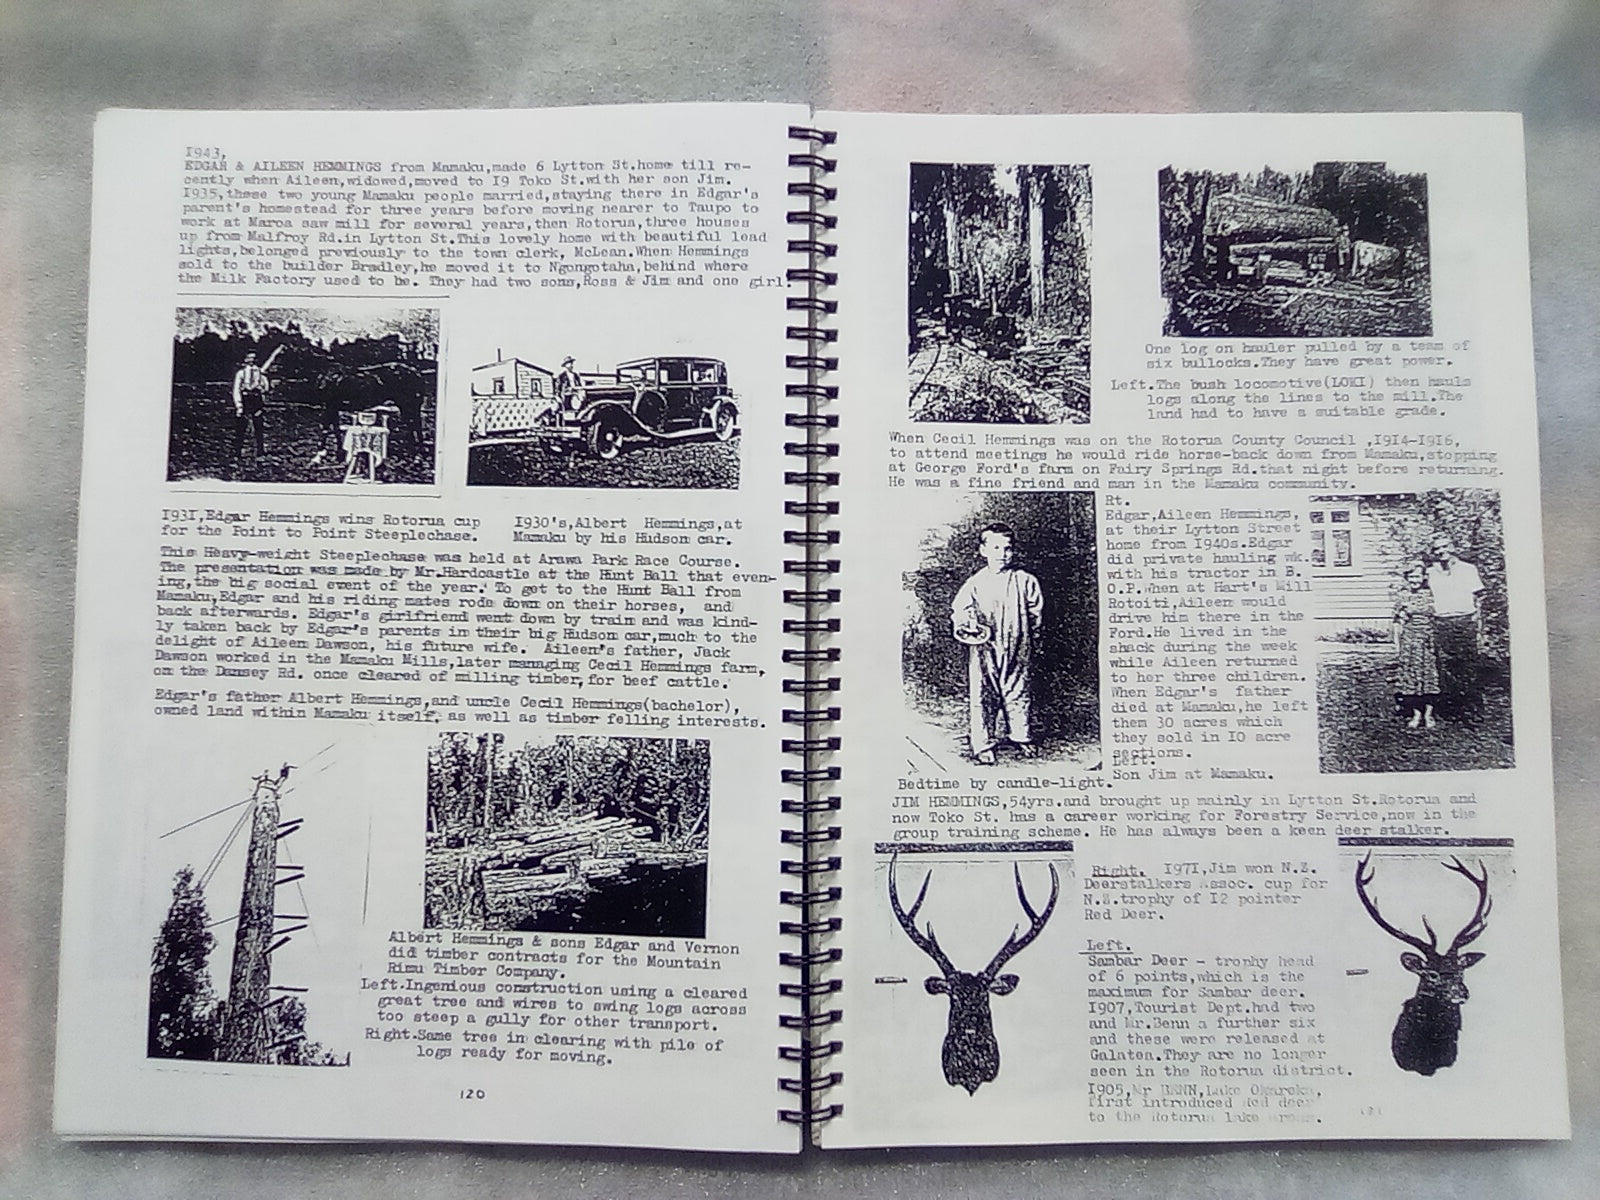 1943,
EDGAR & AILEEN HEMMINGS from Mamaku,made 6 Lytton St.home till re-
cently when Aileen,widowed,moved to I9 Toko St.with her son Jim.
I935,these two young Mamaku people married,staying there in Edgar's
parent's homestead for three years before moving nearer to Taupo to
work at Maroa saw mill for several years,then Rotorua,three houses
up from Malfroy Rd.in Lytton St.This lovely home with beautiful lead
lights,belonged previously to the town clerk, McLean.When Hemmings
sold to the builder Bradley,he moved it to Ngongotaha,behind where
the Milk Factory used to be. They had two sons,Ross & Jim and one girl.
I93I,Edgar Hemmings wins Rotorua cup
for the Point to Point Steeplechase.
I930's,Albert Hemmings,at
Mamaku by his Hudson car.
This Heavy-weight Steeplechase was held at Arawa Park Race Course.
The presentation was made by Mr.Hardcastle at the Hunt Ball that even-
ing,the big social event of the year. To get to the Hunt Ball from
Mamaku,Edgar and his riding mates rode down on their horses, and
back afterwards. Edgar's girlfriend went down by train and was kind-
ly taken back by Edgar's parents in their big Hudson car,much to the
delight of Aileen Dawson, his future wife. Aileen's father, Jack
Dawson worked in the Mamaku Mills,later managing Cecil Hemmings farm,
on the Dansey Rd. once cleared of milling timber,for beef cattle.
Edgar's father Albert Hemmings,and uncle Cecil Hemmings(bachelor),
owned land within Mamaku itself, as well as timber felling interests.
Albert Hemmings & sons Edgar and Vernon
did timber contracts for the Mountain
Rimu Timber Company.
Left.Ingenious construction using a cleared
great tree and wires to swing logs across
too steep a gully for other transport.
Right.Same tree in clearing with pile of
logs ready for moving.
120
One log on hauler pulled by a team of
six bullocks.They have great power.
Left.The bush locomotive(LOKI) then hauls
logs along the lines to the mill.The
land had to have a suitable grade.
When Cecil Hemmings was on the Rotorua County Council ,I9I4-I9I6,
to attend meetings he would ride horse-back down from Mamaku,stopping
at George Ford's farm on Fairy Springs Rd.that night before returning.
He was a fine friend and man in the Mamaku community.
Rt.
Edgar,Aileen Hemmings,
at their Lytton Street
home from I940s.Edgar
did private hauling wk.
with his tractor in B.
O.P.When at Hart's Mill
Rotoiti,Aileen would
drive him there in the
Ford.He lived in the
shack during the week
while Aileen returned
to her three children.
When Edgar's father
died at Mamaku,he left
them 30 acres which
they sold in IO acre
sections.
Left.
Son Jim at Mamaku.
Bedtime by candle-light.
JIM HEMMINGS,54yrs.and brought up mainly in Lytton St.Rotorua and
now Toko St. has a career working for Forestry Service,now in the
group training scheme. He has always been a keen deer stalker.
Right. I97I,Jim won N.Z.
Deerstalkers Assoc. cup for
N.Z.trophy of I2 pointer
Red Deer.
Left.
Sambar Deer - trophy head
of 6 points,which is the
maximum for Sambar deer.
I907,Tourist Dept.had two
and Mr.Benn a further six
and these were released at
Galatea.They are no longer
seen in the Rotorua district.
I905,Mr BENN,Lake Okareka,
first introduced Red deer
to the Rotorua lake areas.
121